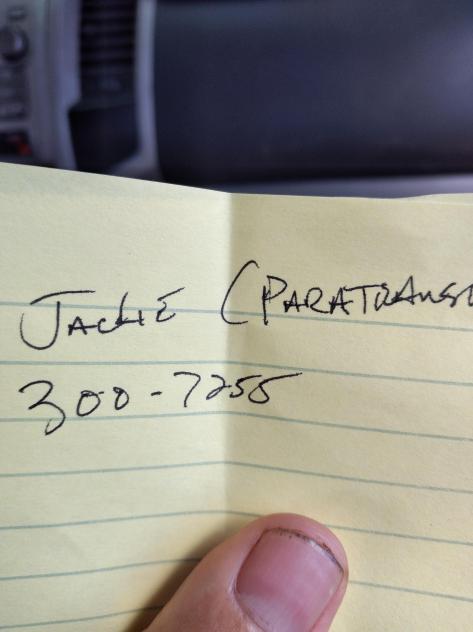 JACKIE (PARATRANSI
300-7255